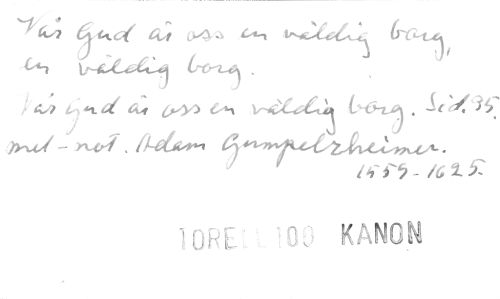 Vår Gud är oss en väldig borg,
en väldig borg.
Vår Gud är oss en väldig borg. Sid. 95.
mel-not. Adam Gumpelzheimer.
1559-1625.
TORELL 100 KANON